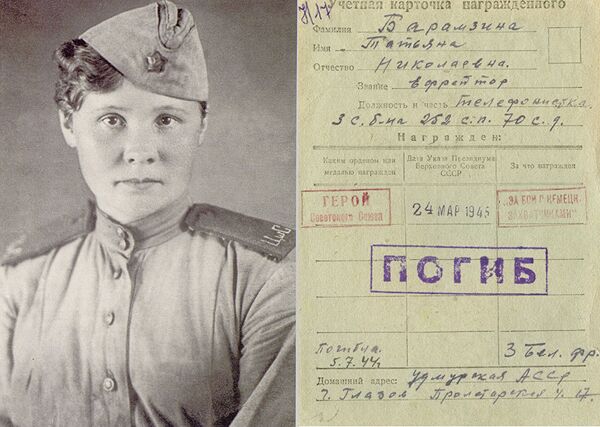 Учетная карточка награжденного
Фамилия Барамзина
Имя Татьяна
Отчество Николаевна.
Звание ефрейтор
Должность и часть телефонистка.
3 с. б-на 252 с.п. 70 с.д.
Награжден:
Каким орденом или медалью награжден
Дата Указа Президиума Верховного Совета СССР
За что награжден
ГЕРОЙ
Советского Союза
24 МАР 1945
„ЗА БОИ С НЕМЕЦК.
ЗАХВАТЧИКАМИ"
ПОГИБ
Погибла
5.7.44г.
3 Бел. фр.
Домашний адрес: Удмурская АССР
г. Глазов Пролетарская 17.